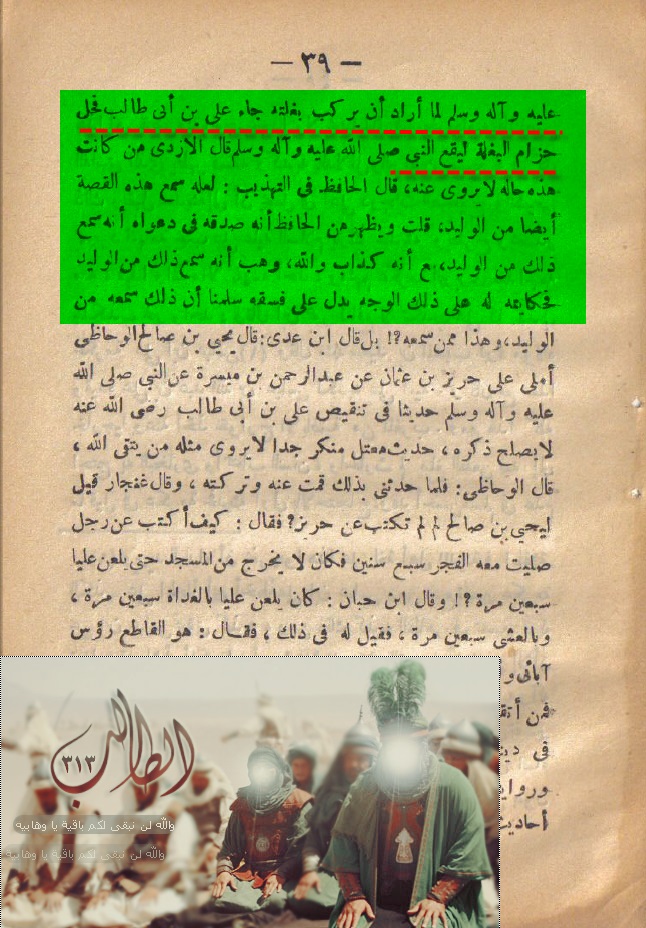 — ٣٩ —
عليه وآله وسلم لما أراد أن يركب بغلته جاء على بن أبى طالب فحل
حزام البغلة ليقع النبى صلى الله عليه وآله وسلم قال الازدى من كانت
هذه حاله لا يروى عنه، قال الحافظ فى التهذيب : لعله سمع هذه القصة
أيضا من الوليد، قلت ويظهر من الحافظ أنه صدقه فى دعواه أنه سمع
ذلك من الوليد، مع أنه كذاب والله، وهب أنه سمع ذلك من الوليد
فحكايته له على ذلك الوجه يدل على فسقه سلمنا أن ذلك سمعه من
الوليد، وهذا ممن سمعه ?! بل قال ابن عدى: قال يحيى بن صالح الوحاظى
أملى على حريز بن عثمان عن عبدالرحمن بن ميسرة عن النبى صلى الله
عليه وآله وسلم حديثا فى تنقيص على بن أبى طالب رضى الله عنه
لا يصلح ذكره ، حديث معتل منكر جدا لا يروى مثله من يتقى الله ،
قال الوحاظى: فلما حدثنى بذلك قمت عنه وتركته ، وقال غنجار قيل
ليحيى بن صالح لم لم تكتب عن حريز? فقال : كيف أكتب عن رجل
صليت معه الفجر سبع سنين فكان لا يخرج من المسجد حتى يلعن عليا
سبعين مرة ?! وقال ابن حبان : كان يلعن عليا بالغداة سبعين مرة ،
وبالعشى سبعين مرة ، فقيل له فى ذلك ، فقال : هو القاطع رؤس
آبائى و
فمن
فى
أحاديث
الطالب
٣١٣
والله لن نبقي لكم باقية يا وهابيه
والله لن نبقي لكم باقية يا وهابيه